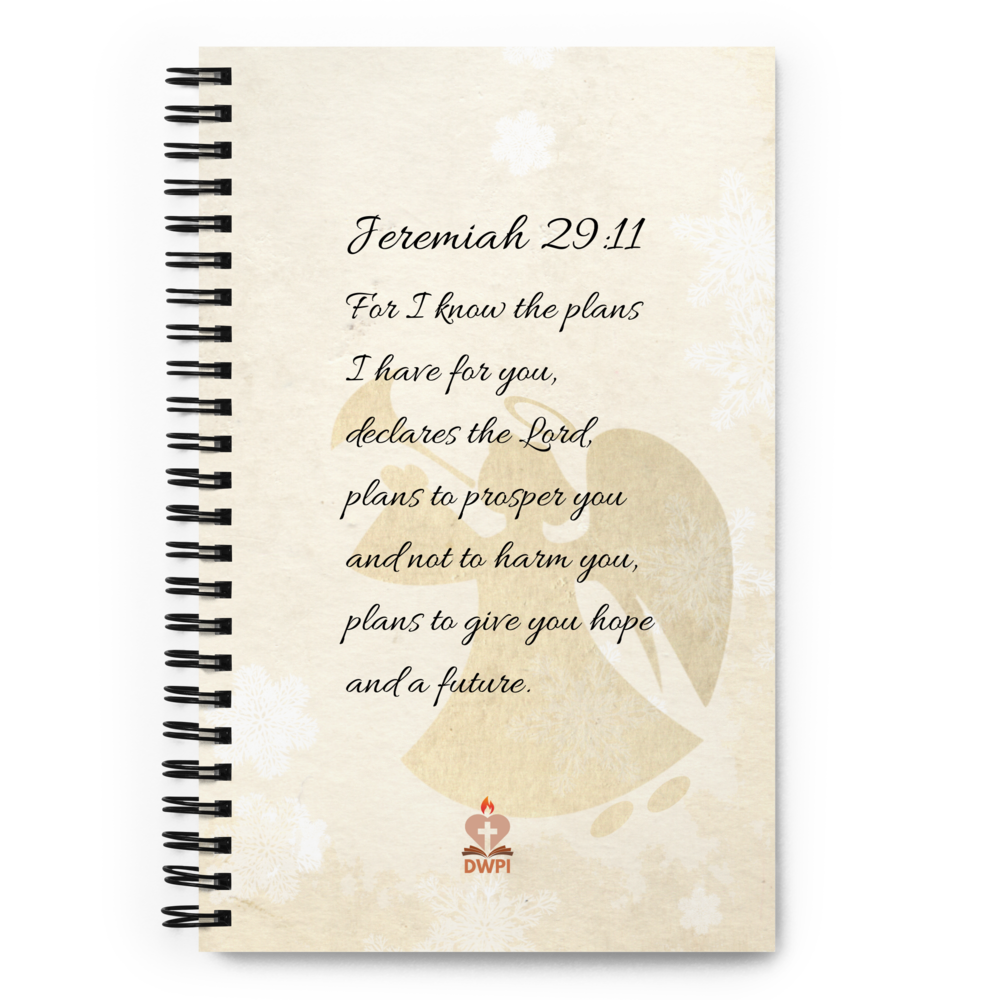 Jeremiah 29:11
For I know the plans
I have for you,
declares the Lord,
plans to prosper you
and not to harm you,
plans to give you hope
and a future.
DWPI